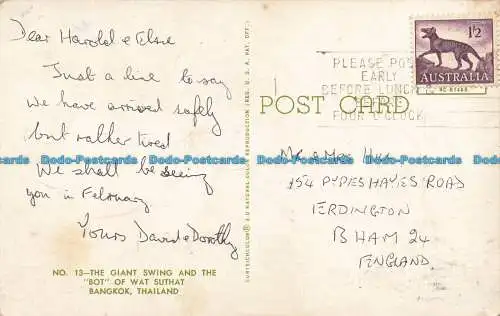 Dear Harold & Elsie
Just a line to say
we have arrived safely
but rather tired
We shall be seeing
you in February
Yours David & Dorothy
NO. 13—THE GIANT SWING AND THE
"BOT" OF WAT SUTHAT
BANGKOK, THAILAND
POST CARD
PLEASE POST
EARLY
BEFORE LUNCH &
BEFORE
FOUR O'CLOCK
1/2
AUSTRALIA
Mr & Mrs
154 PYPES HAYES ROAD
ERDINGTON
B HAM 24
ENGLAND
Dodo-Postcards Dodo-Postcards Dodo-Postcards Dodo-Postcards Dodo-Postcards